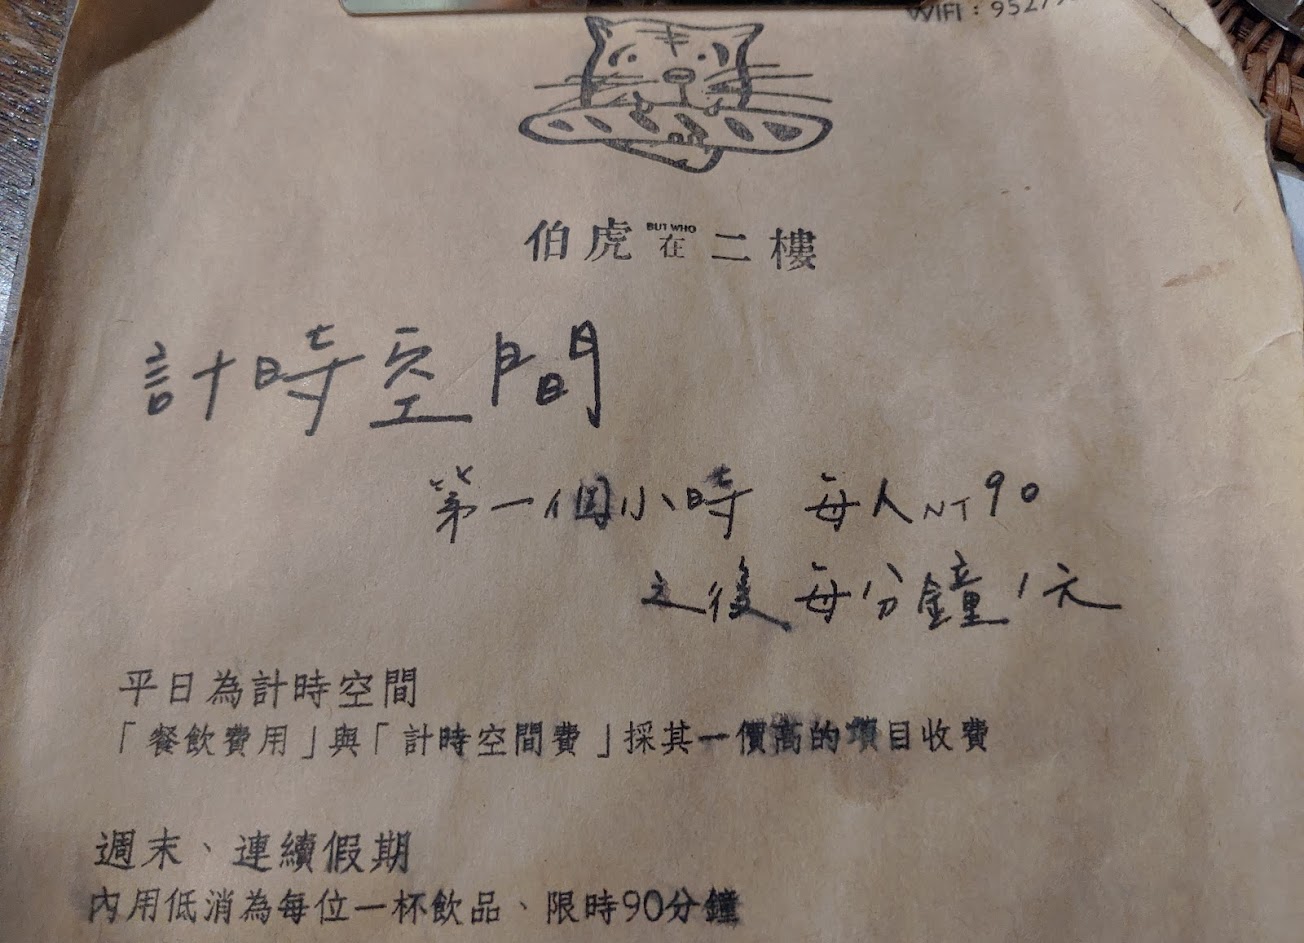 WIFI：9527
伯虎 BUT WHO 在 二樓
計時空間
第一個小時 每人NT90
之後 每分鐘1元
平日為計時空間
「餐飲費用」與「計時空間費」採其一價高的項目收費
週末、連續假期
內用低消為每位一杯飲品、限時90分鐘